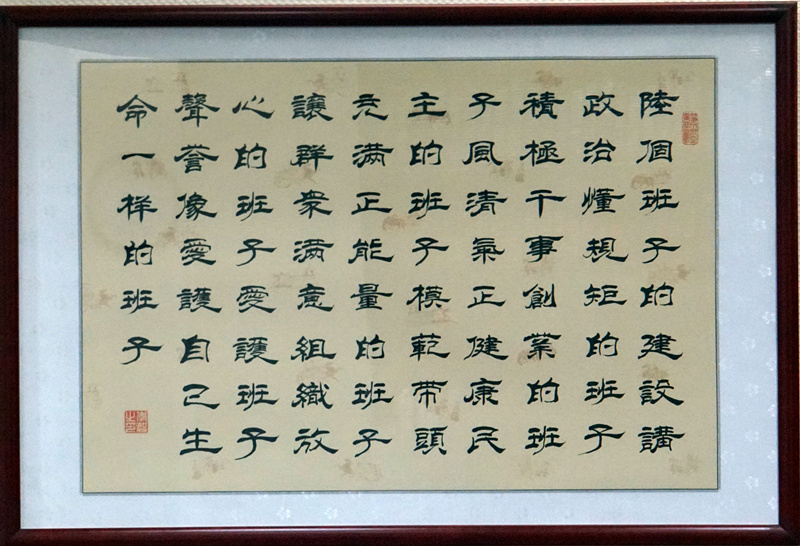 陸個班子的建設講
政治懂規矩的班子
積極干事創業的班
子風清氣正健康民
主的班子模範帶頭
充滿正能量的班子
讓群衆滿意組織放
心的班子愛護班子
聲譽像愛護自己生
命一样的班子